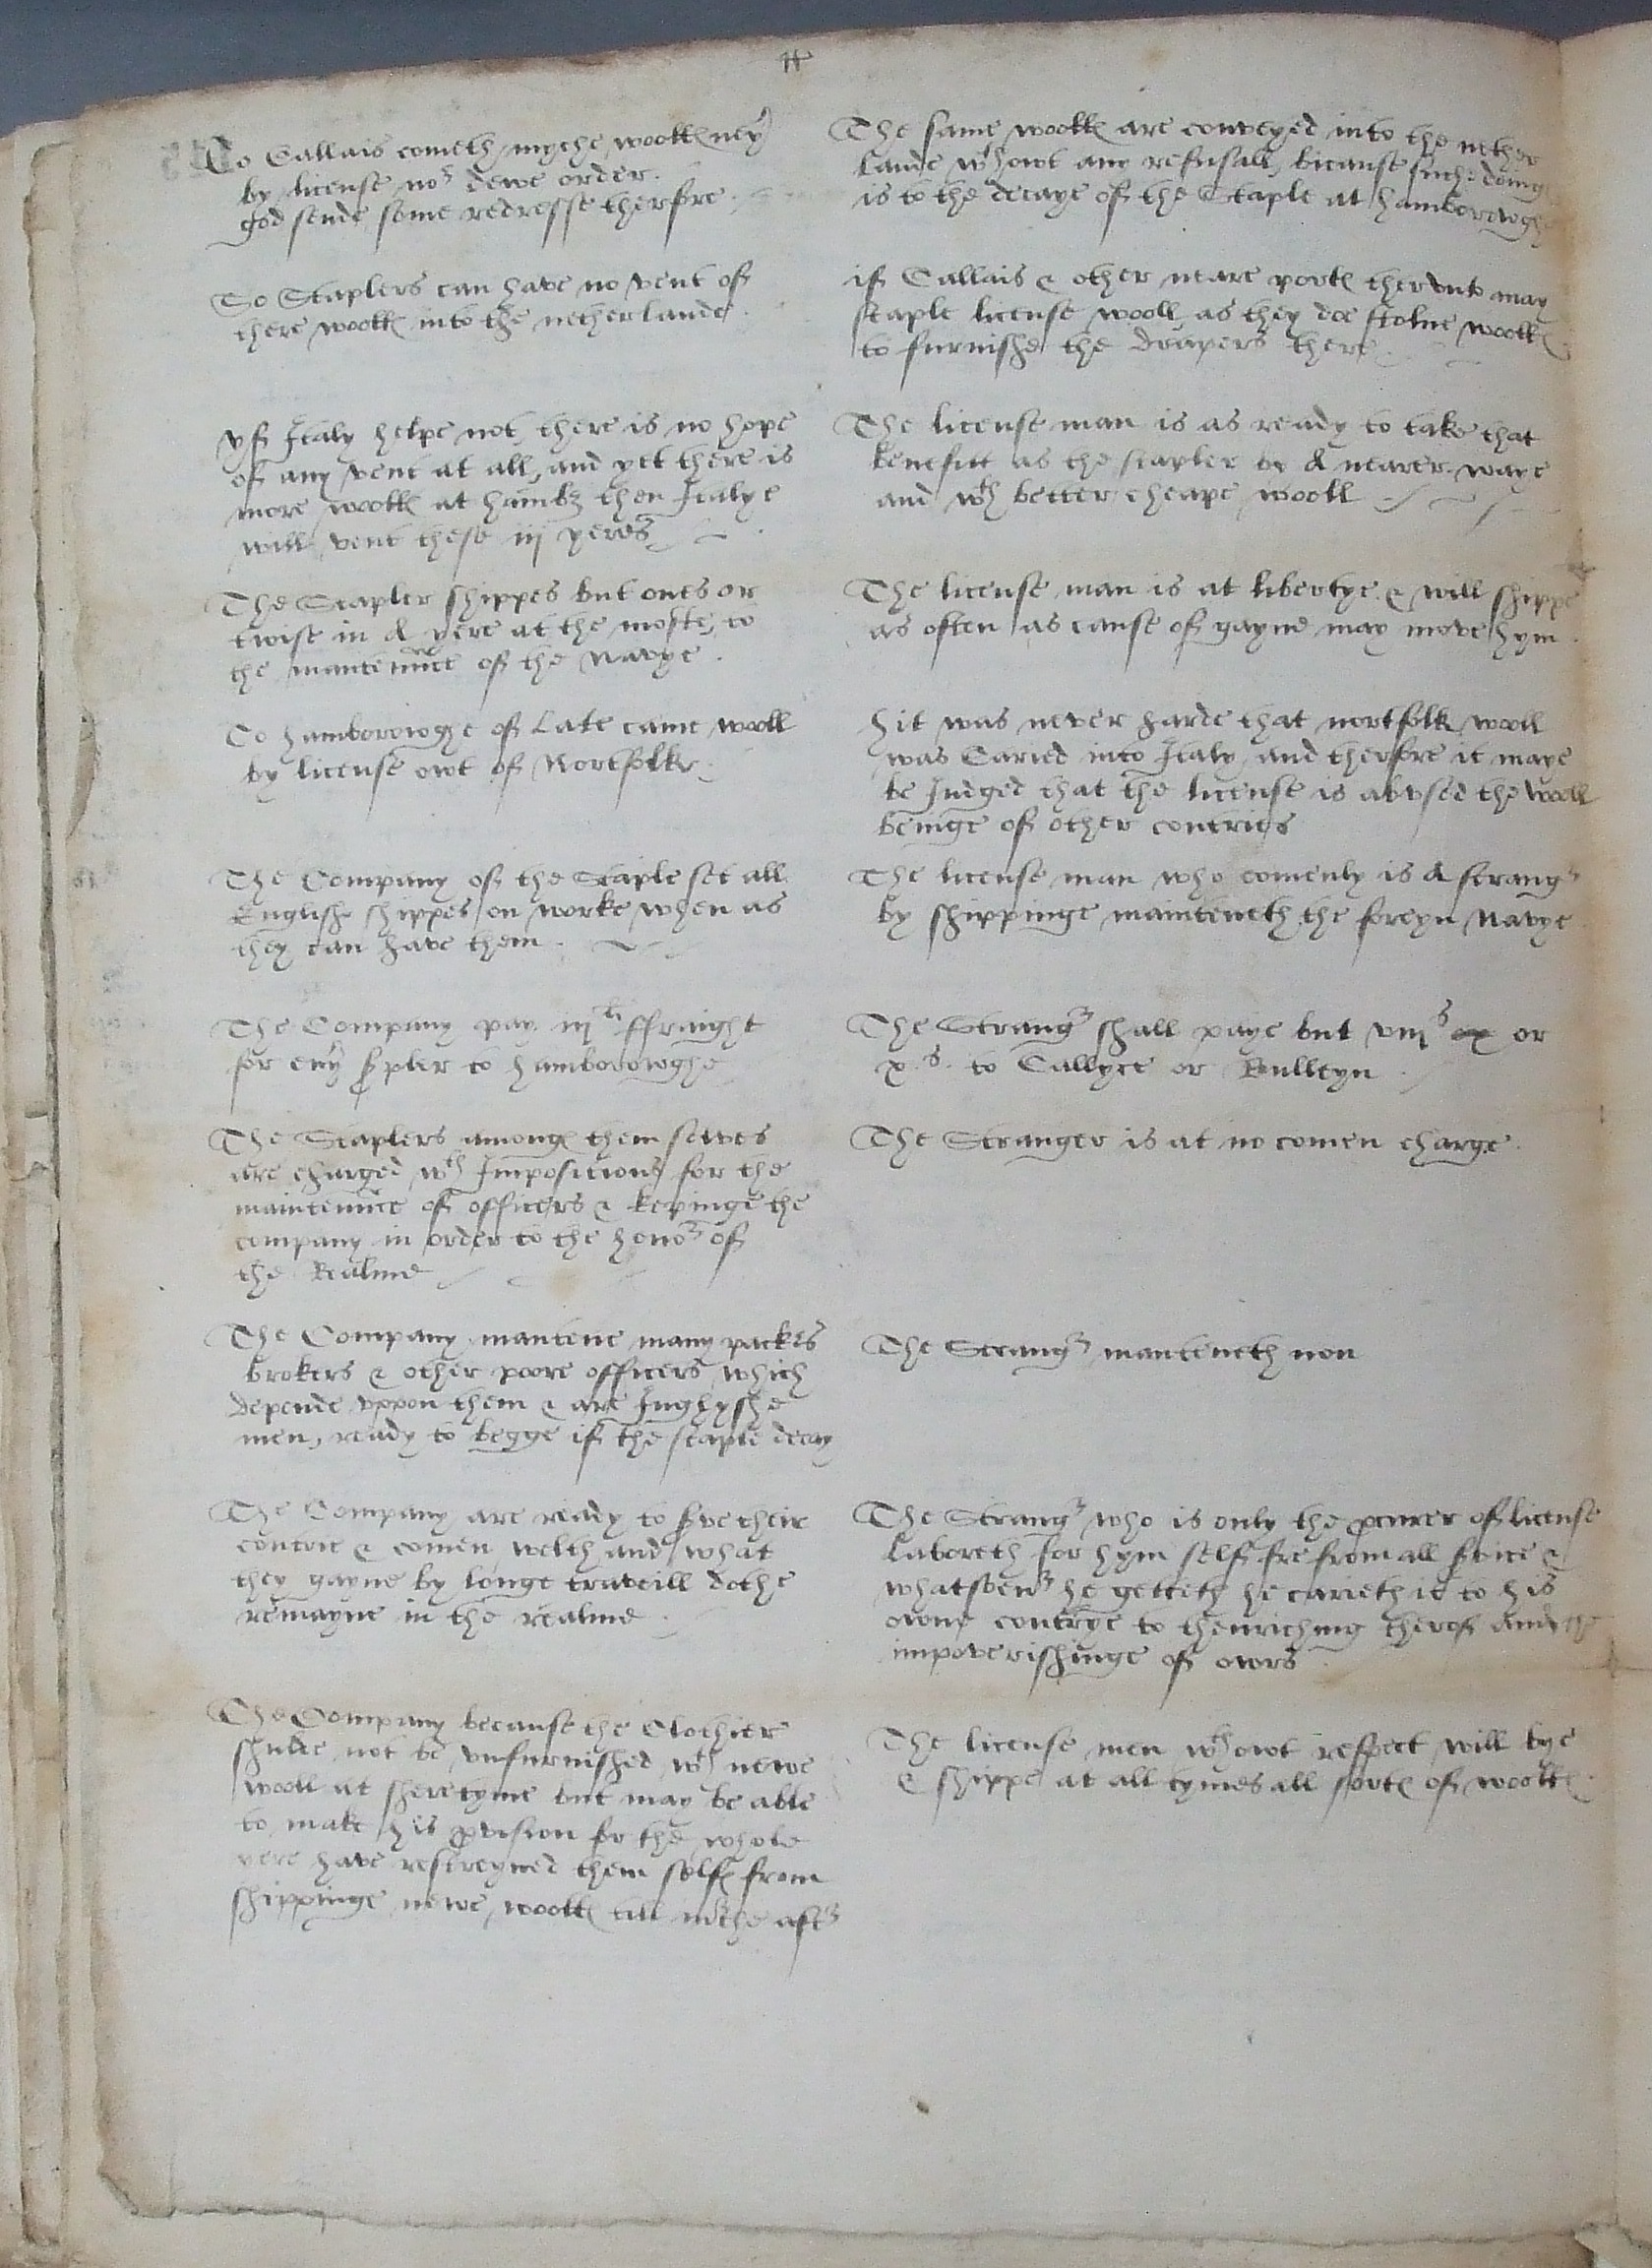 To Callais cometh myche woolles neyther
by license nor dewe order.
god sende some redresse therfore.
So Staplers can have no vent of
there woolles into the netherlande.
yf Italy helpe not there is no hope
of any vent at all, and yet there is
more woolles at hambz then Italye
will vent these iij yeres
The Stapler shippes but ones or
twise in A yere at the moste, to
the mantenance of the Navye.
To hamborowghe of late came wooll
by license owt of Nortfolke.
The Company of the Staple set all
Englishe shippes on worke when as
they can have them.
The Company pay iij li ffraight
for every sarpler to hamborowghe
The Staplers amonges them selves
are charged wth Impositions for the
maintenance of officers & kepinge the
company in order to the honor of
the Realme
The Company mantene many packers
brokers & other poore officers which
depende vppon them & are Inglyshe
men, ready to begge if the staple decay
The Company are ready to serve their
contrie & comen welth and what
they gayne by longe traveill dothe
remayne in the realme.
The Company because the Clothier
shulde not be vnfurnished wth newe
wooll at sheretyme but may be able
to make his provision for the whole
yere have restreyned them selfes from
shippinge newe woolles till marche after
The same woolles are conveyed into the nether
lande wthowt any refusall, bicause suche doing
is to the decaye of the Staple at hamborowghe
if Callais & other neare portes thervnto may
staple license wooll as they doe stolne woolles
to furnishe the drapers there.
The license man is as ready to take that
benefitt as the stapler by A nearer waye
and wth better cheape wooll.
The license man is at libertye & will shippe
as often as cause of gayne may move hym.
hit was never harde that nortfolk wooll
was Caried into Italy and therfore it maye
be Judged that the license is abvsed the wooll
beinge of other contries
The license man who comenly is A stranger
by shippinge mainteneth the foreyn Navye.
The Stranger shall paye but viij s or
x s. to Callyce or Bulleyn.
The Stranger is at no comen charge.
The Stranger manteneth non
The Stranger who is only the procurer of license
laboreth for hym self fre from all service &
whatsoever he getteth he carieth it to his
owne contrye to thenriching therof and the
impoverishinge of owrs.
The license men wthowt respect will bye
& shippe at all tymes all sortes of woolles.